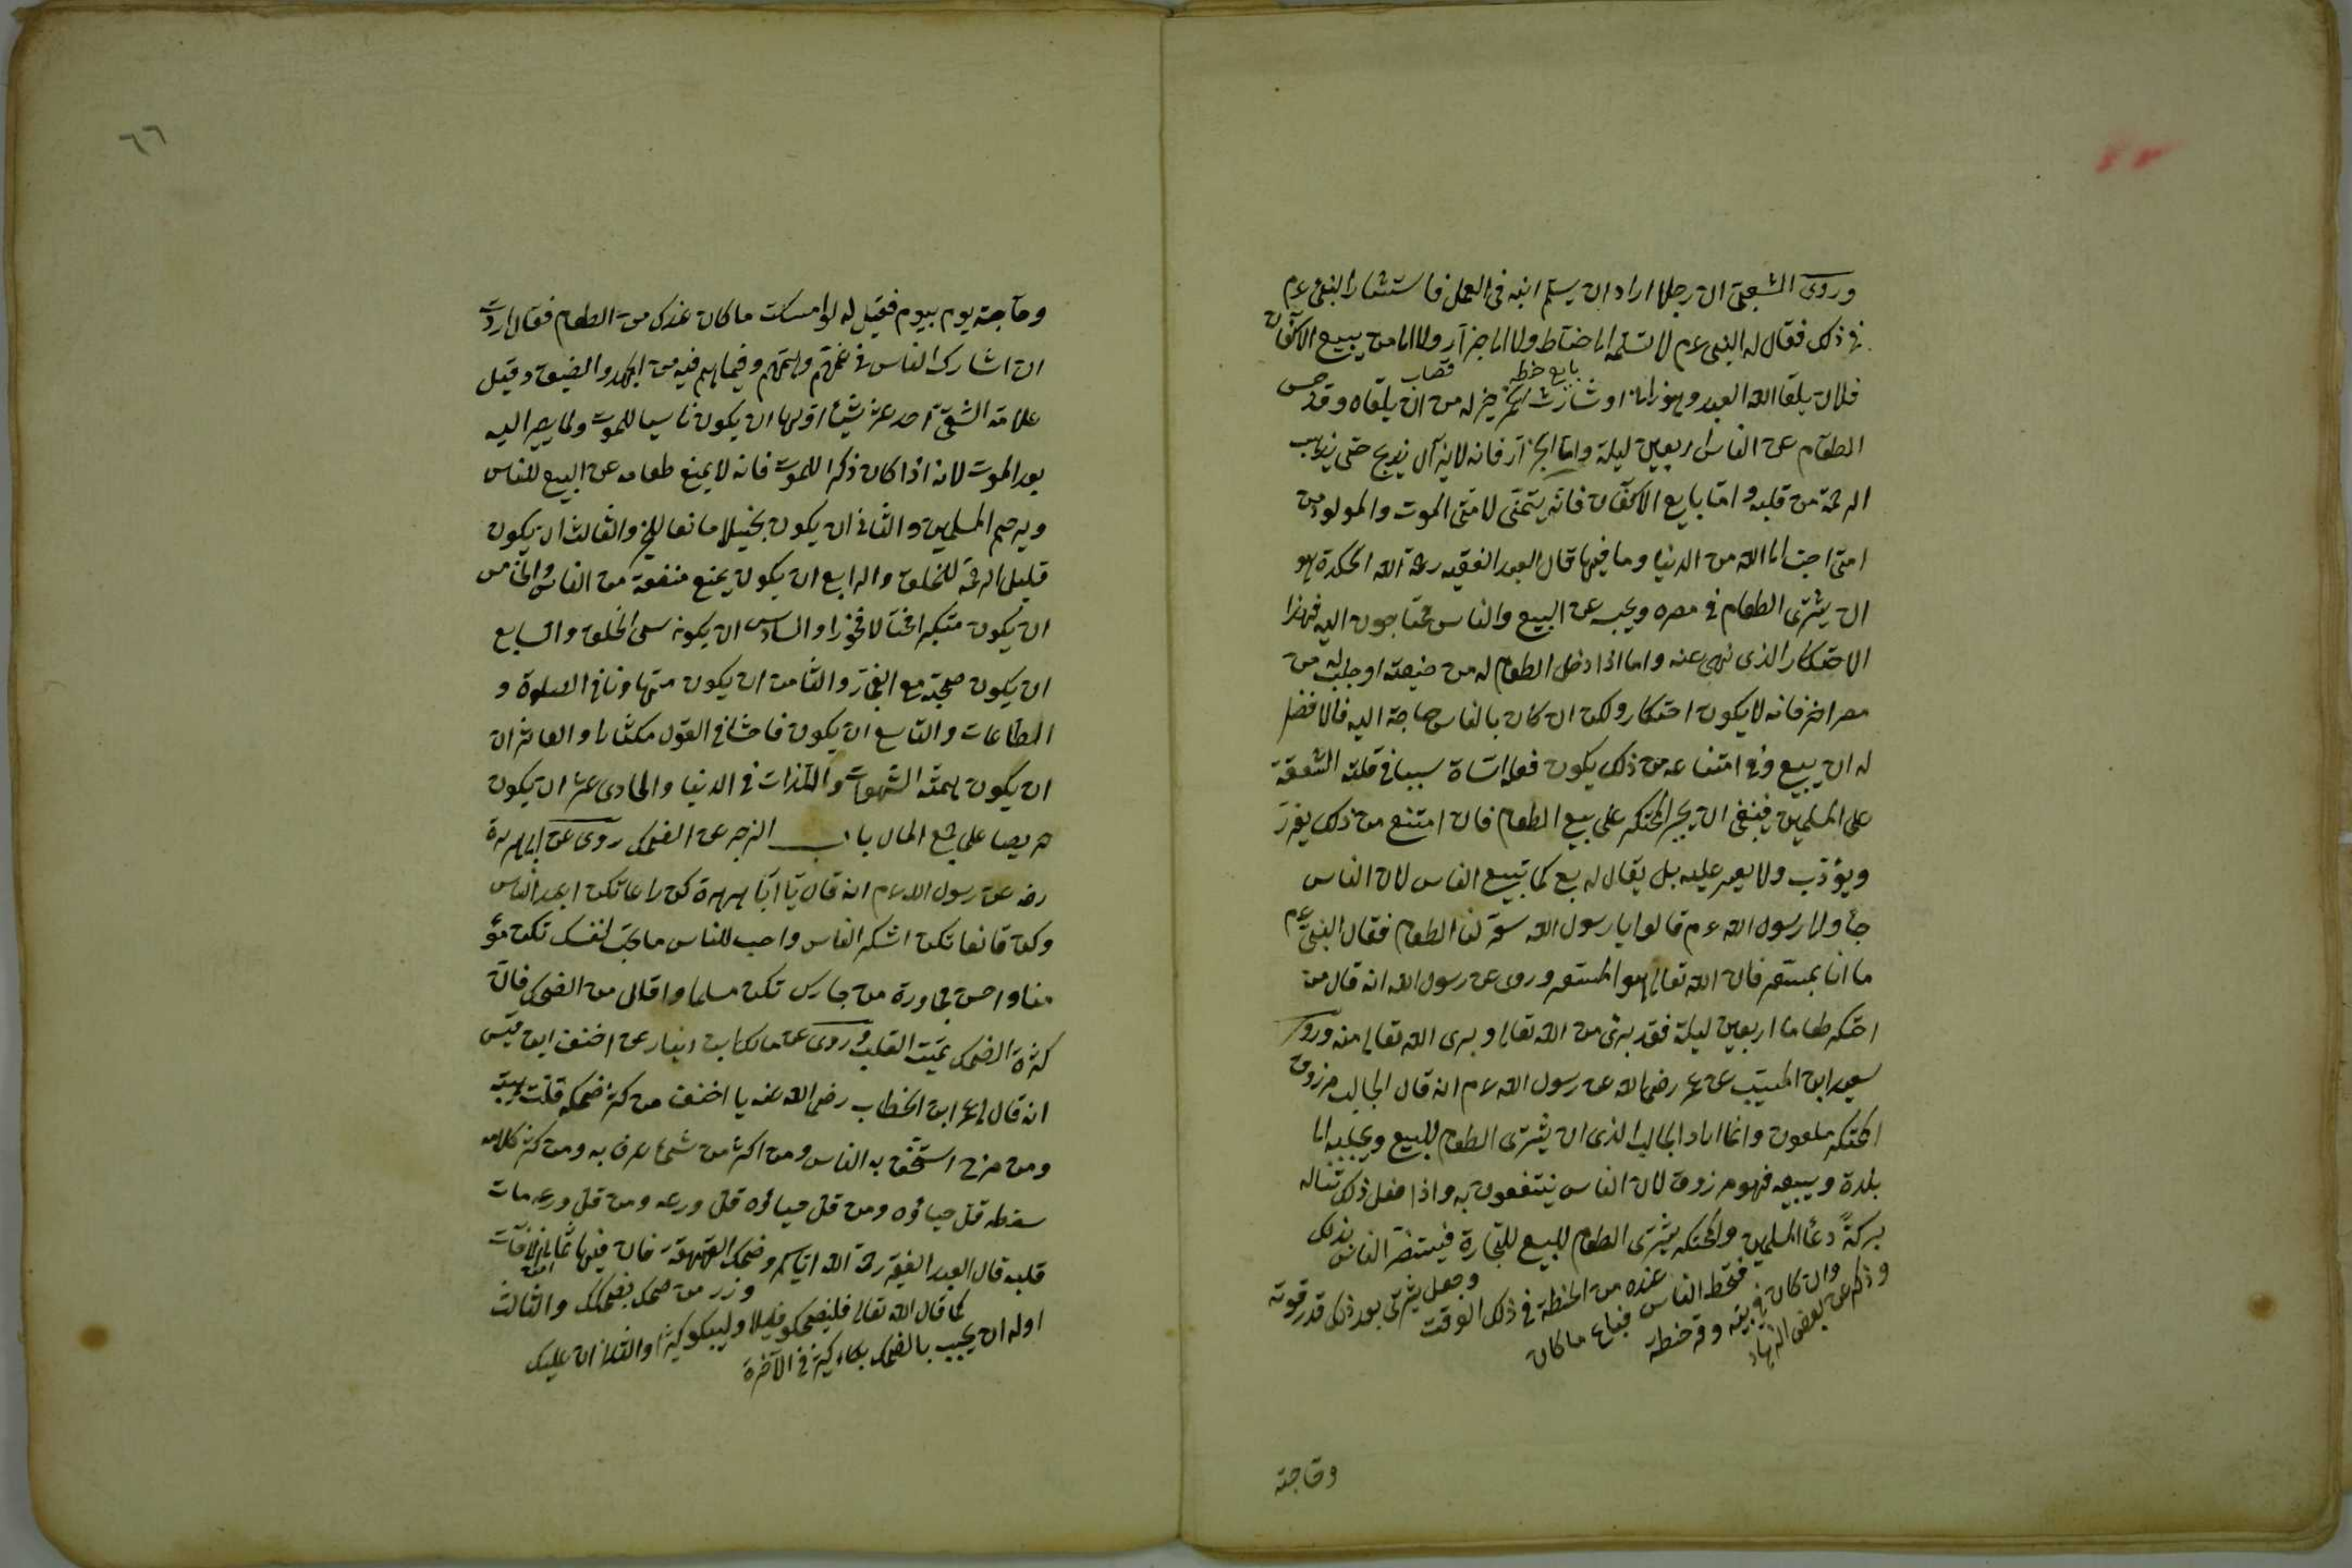 وروى الشعبى ان رجلا اراد ان يسلم ابنه فى العمل فاستشار النبى عم
فى ذلك فقال له النبى عم لا تسلمه الى حناط ولا الى جزار ولا الى من يبيع الاكفان
بايع حنطه قصاب
فلان يلقا الله العبد وهو زان او شارب خمر خير له من ان يلقاه وقد حبس
الطعام عن الناس اربعين ليلة واما الجزار فانه لا يزال يذبح حتى يذهب
الرحمة من قلبه واما بايع الاكفان فانه يتمنى لامتى الموت والمولود من
امتى احب الى الله من الدنيا وما فيها قال العبد الفقيه رحمة الله الحكرة هو
ان يشترى الطعام فى مصره ويحبسه عن البيع والناس محتاجون اليه فهذا
الاحتكار الذى نهى عنه واما اذا دخل الطعام له من ضيعته او جلبه من
مصر اخر فانه لا يكون احتكار ولكن ان كان بالناس حاجة اليه فالافضل
له ان يبيع وفى امتناعه من ذلك يكون فعله اساة سببا فى قلته الشفقة
على المسلمين فينبغى ان يجبر المحتكر على بيع الطعام فان امتنع من ذلك يعزر
ويؤدب ولا يسعر عليه بل يقال له بع كما يبيع الناس لان الناس
جاؤ الى رسول الله عم قالوا يا رسول الله سعر لنا الطعام فقال النبى عم
ما انا بمسعر فان الله تعالى هو المسعر وروى عن رسول الله انه قال من
احتكر طعاما اربعين ليلة فقد برئ من الله تعالى وبرى الله تعالى منه وروى
سعيد ابن المسيب عن عمر رضى الله عن رسول الله عم انه قال الجالب مرزوق
المحتكر ملعون وانما اراد الجالب الذى ان يشترى الطعام للبيع ويجلبه الى
بلدة ويبيعه فهو مرزوق لان الناس ينتفعون به واذا فعل ذلك تناله
بركة دعأ المسلمين والمحتكر يشترى الطعام للبيع للتجارة فيستضر الناس بذلك
وذكر عن بعض الزهاد
وان كان فى بيته وقر حنطة
فقحط الناس فباع ما كان
عنده من الحنطة فى ذلك الوقت
وجعل يشترى بعد ذلك قدر قوته
وحاجته
٦٦
وحاجته يوم بيوم فقيل له لو امسكت ما كان عندك من الطعام فقال اردت
ان اشارك الناس فى غمهم وهمهم وفيما هم فيه من الجهد والضيق وقيل
علامة الشقى احد عشر شيئا اولها ان يكون ناسيا للموت ولما يصير اليه
بعد الموت لانه اذا كان ذكرا للموت فانه لا يمنع طعامه عن البيع للناس
ويرحم المسلمين والثانى ان يكون بخيلا مانعا للخير والثالث ان يكون
قليل الرحمة للخلق والرابع ان يكون يمنع منفعة من الناس والخامس
ان يكون متكبرا مختالا فخورا والسادس ان يكون سىء الخلق والسابع
ان يكون صحبته مع الفجار والثامن ان يكون متهاونا فى الصلوة و
الطاعات والتاسع ان يكون فاحشا فى القول مكثارا والعاشر ان
ان يكون همته الشهوات واللذات فى الدنيا والحادى عشر ان يكون
حريصا على جمع المال باب الزجر عن الضحك روى عن ابى هريرة
رضه عن رسول الله عم انه قال يا ابا هريرة كن راعا تكن اعبد الناس
وكن قانعا تكن اشكر الناس واحب للناس ما تحب لنفسك تكن مؤ
منا واحسن مجاورة من جارك تكن مسلما واقلل من الضحك فان
كثرة الضحك يميت القلب وروى عن مالك ابن دينار عن احنف ابن قيس
انه قال لى عمر ابن الخطاب رضى الله عنه يا احنف من كثر ضحكه قلت هيبته
ومن مزح استخف به الناس ومن اكثر من شىء عرف به ومن كثر كلامه
سقطه قل حياؤه ومن قل حياؤه قل ورعه ومن قل ورعه مات
قلبه قال العبد الفقير رحمة الله اياكم وضحك القهقهة فان فيها ثمانية من الافات
اوله ان يجيب بالضحك بكاء كثير فى الآخرة
كما قال الله تعالى فليضحكو قليلا وليبكو كثيرا والثانى ان عليك
وزر من ضحك بضحكك والثالث